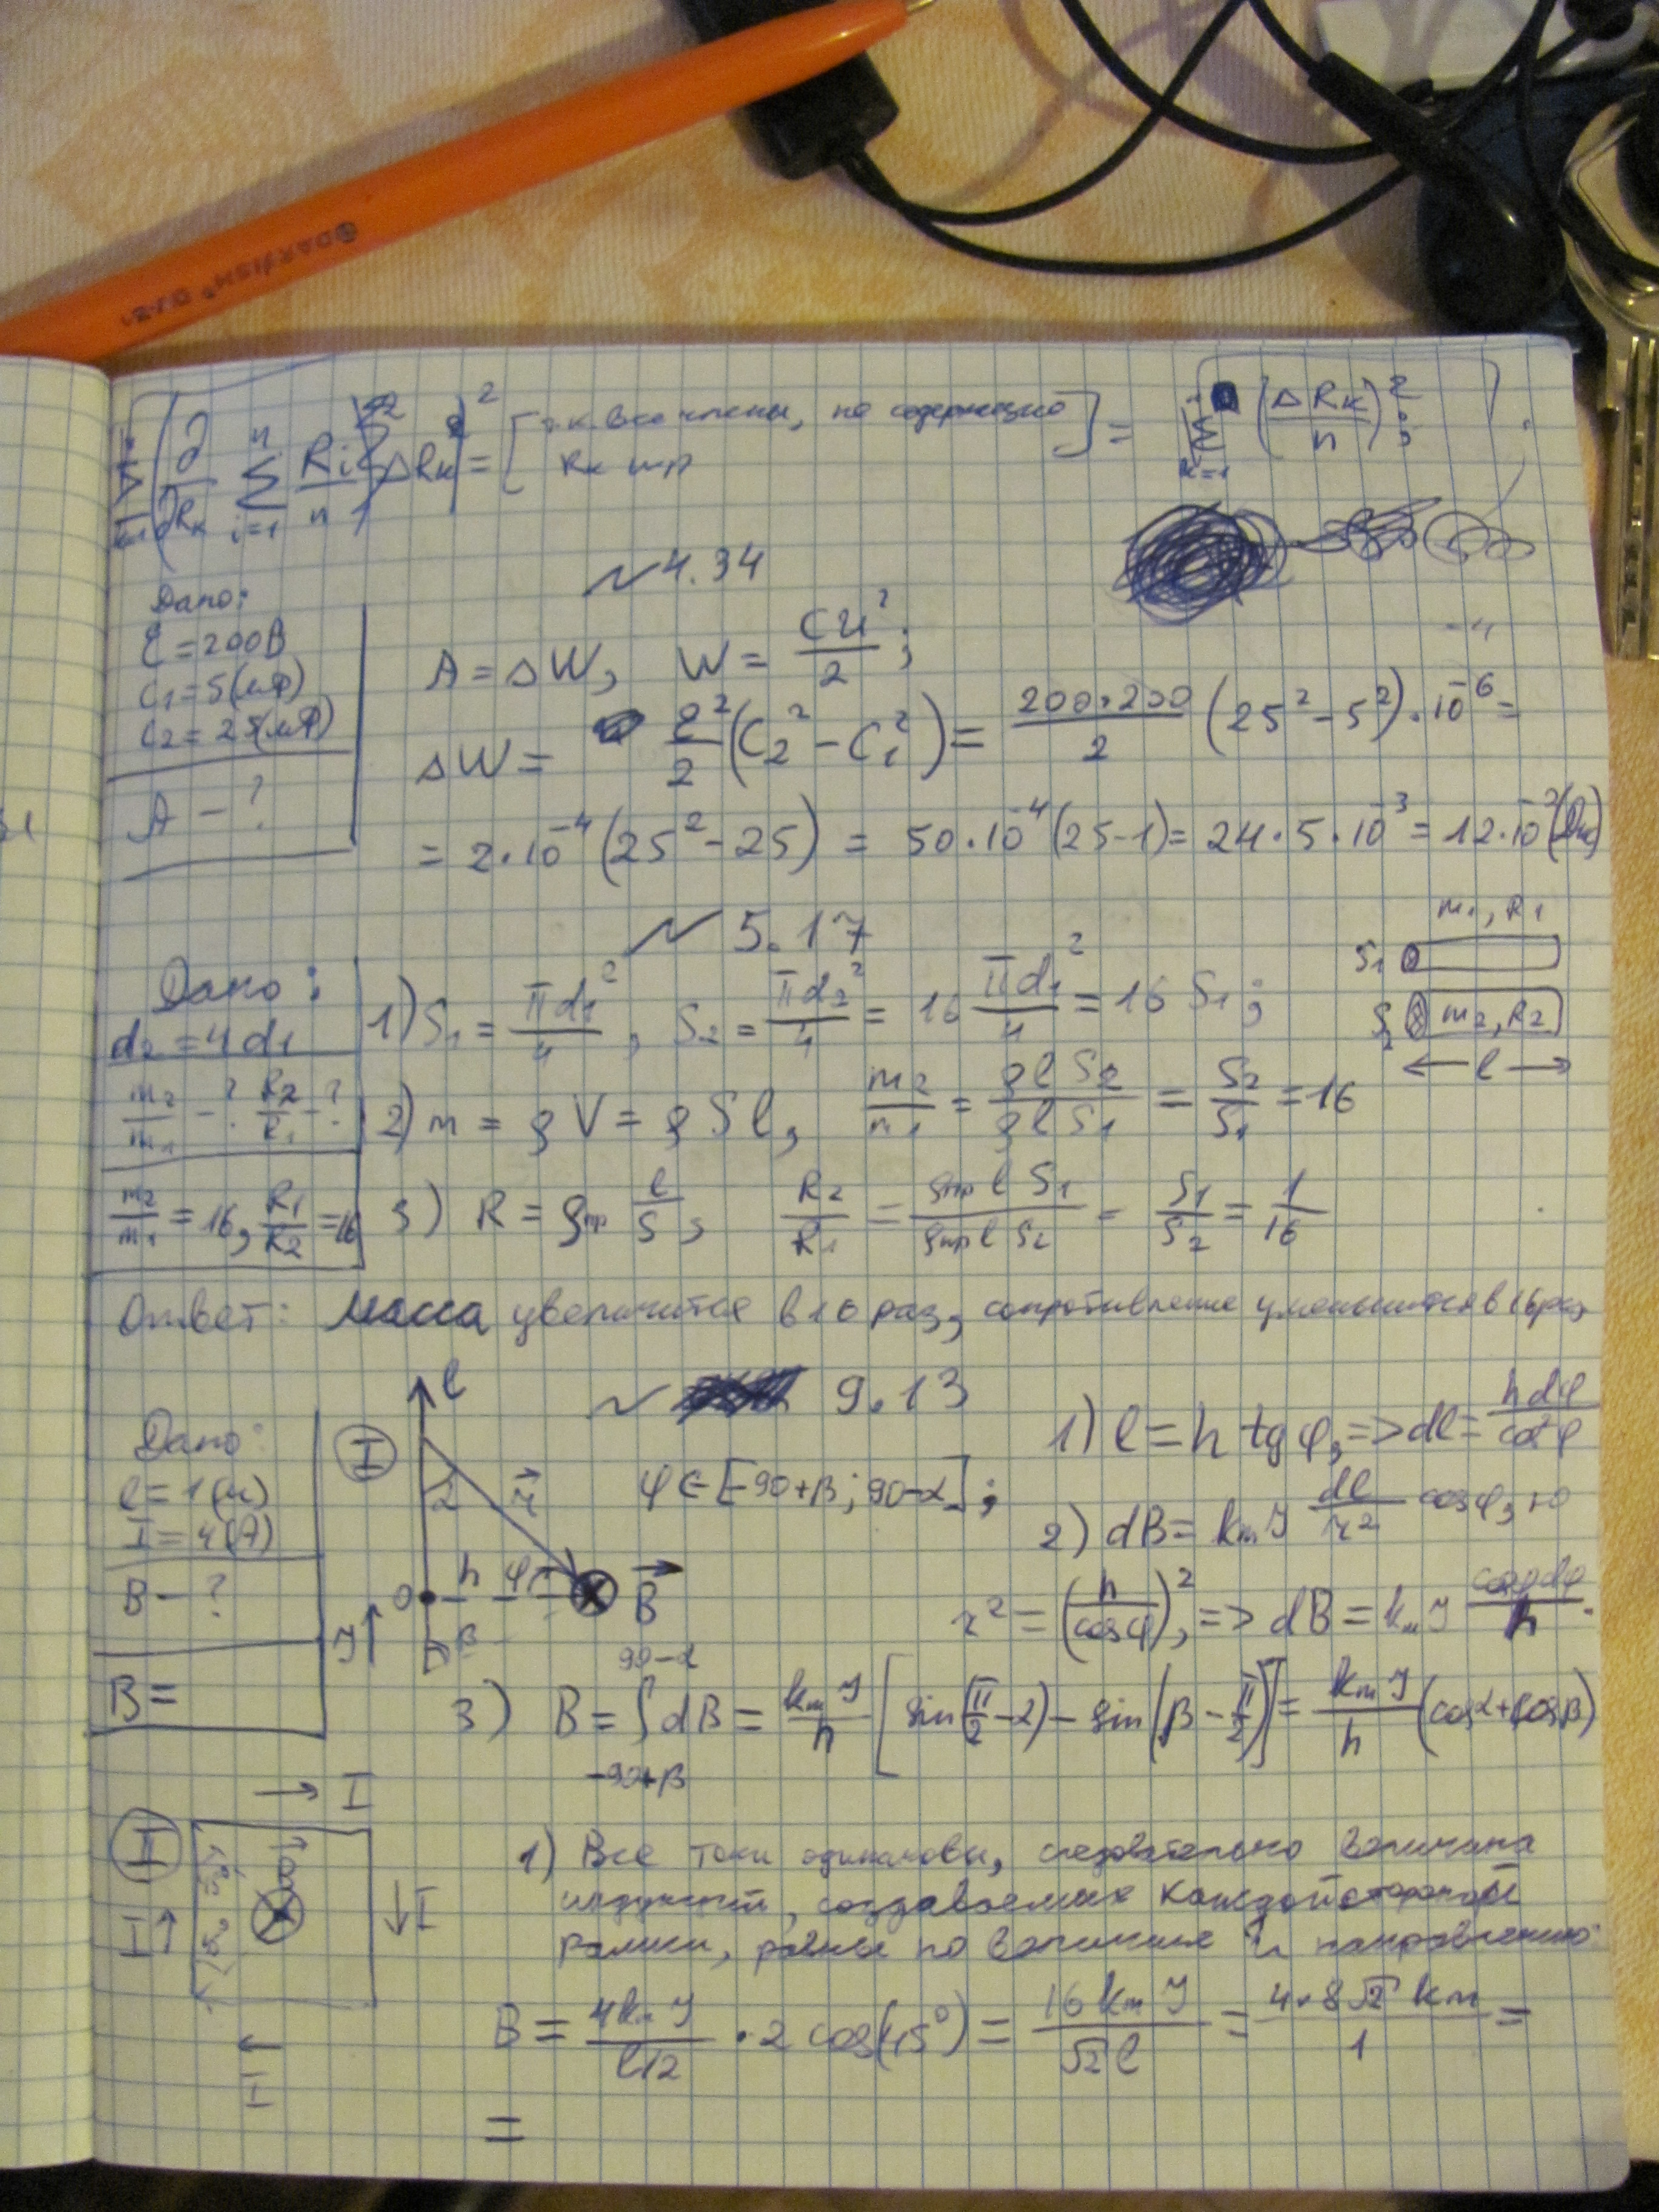 ∂/∂Rₖ Σ_{i=1}^{n} Rᵢ/n ΔRₖ)² = [т.к все члены, не содержащие Rₖ] = Σ_{k=1} (ΔRₖ/n)²;
~ 4.34
Дано:
ℰ = 200В
C₁ = 5(мФ)
C₂ = 25(мФ)
A - ?
A = ΔW, W = CU²/2;
ΔW = ℰ²/2 (C₂² - C₁²) = 200·200/2 (25² - 5²)·10⁻⁶ =
= 2·10⁻⁴(25² - 25) = 50·10⁻⁴(25-1) = 24·5·10⁻³ = 12·10⁻²(Дж)
~ 5.17
Дано:
d₂ = 4d₁
m₂/m₁ - ? R₂/R₁ - ?
m₂/m₁ = 16, R₁/R₂ = 16
1) S₁ = πd₁²/4, S₂ = πd₂²/4 = 16 πd₁²/4 = 16 S₁;
m₁, R₁
S₁
S₂ m₂, R₂
← l →
2) m = ρV = ρSl, m₂/m₁ = ρlS₂/ρlS₁ = S₂/S₁ = 16
3) R = ρпр l/S, R₂/R₁ = ρпр l S₁/ρпр l S₂ = S₁/S₂ = 1/16
Ответ: Масса увеличится в 16 раз, сопротивление уменьшится в 16 раз
~ 9.13
Дано:
l = 1(м)
I = 4(А)
B - ?
B =
I
l
α r⃗
0 h φ B⃗
β
J↑
φ ∈ [-90+β; 90-α];
1) l = h tg φ, => dl = h dφ/cos²φ
2) dB = kₘJ dl/r² cosφ, но
r² = (h/cosφ)², => dB = kₘJ cosφdφ/h.
3) B = ∫_{-90+β}^{90-α} dB = kₘJ/h [sin(π/2-α) - sin(β-π/2)] = kₘJ/h (cosα+cosβ)
II
→ I
I↑
↓I
←
I
1) Все токи одинаковы, следовательно величина
индукций, создаваемых каждой стороной
рамки, равны по величине и направлению:
B = 4kₘJ/l/2 · 2 cos(45°) = 16kₘJ/√2l = 4·8√2 kₘ/1 =
=